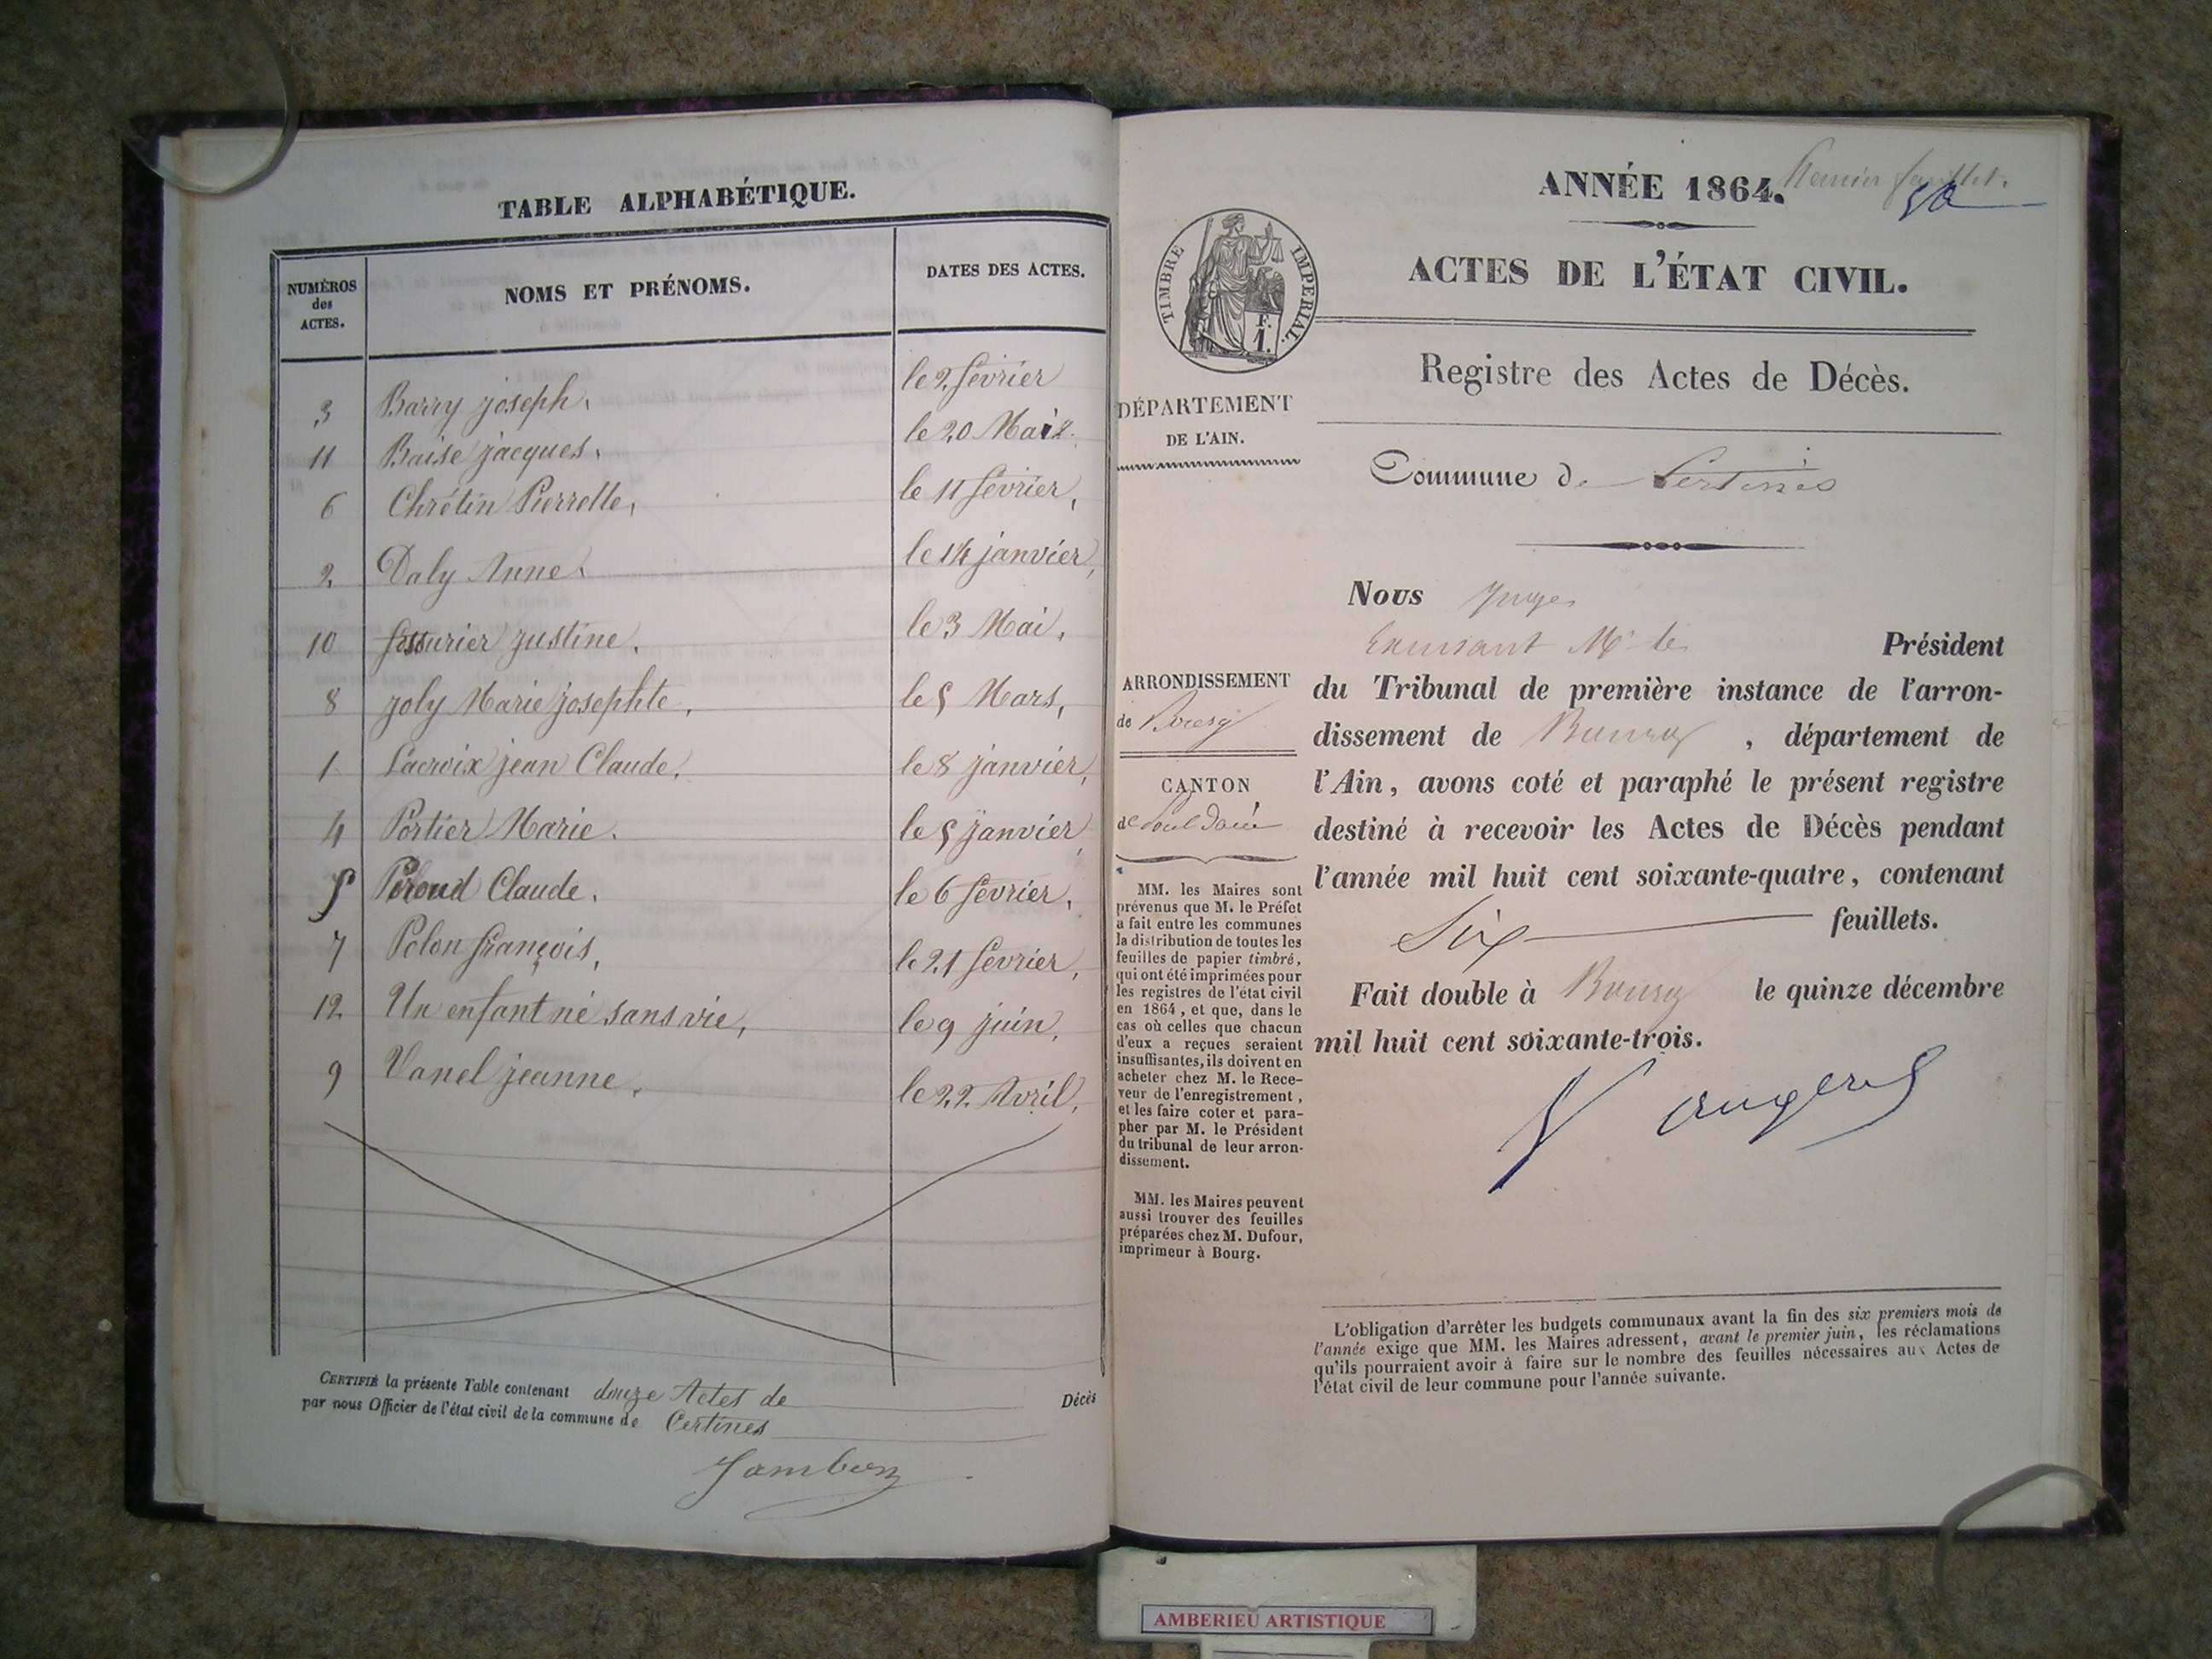 TABLE ALPHABÉTIQUE.
NUMÉROS des ACTES. NOMS ET PRÉNOMS. DATES DES ACTES.
3 Barry joseph, le 2 février
11 Baise jacques, le 20 Mai
6 Chrétin Pierrette, le 11 février,
2 Daly Anne le 14 janvier,
10 justine. le 3 Mai,
8 joly Marie josephte, le 5 Mars,
1 Lacroix jean Claude, le 8 janvier,
4 Portier Marie. le 5 janvier,
5 Claude. le 6 février,
7 Polon françois, le 21 février,
12 Un enfant né sans vie, le 9 juin,
9 Vanel jeanne, le 22 Avril,
CERTIFIÉ la présente Table contenant douze Actes de Décès
par nous Officier de l'état civil de la commune de Certines
ANNÉE 1864. feuillet.
TIMBRE IMPERIAL.
F.
1.
ACTES DE L'ÉTAT CIVIL.
Registre des Actes de Décès.
DÉPARTEMENT
DE L'AIN.
Commune de Certines
ARRONDISSEMENT
de Bourg
CANTON
de
MM. les Maires sont
prévenus que M. le Préfet
a fait entre les communes
la distribution de toutes les
feuilles de papier timbré,
qui ont été imprimées pour
les registres de l'état civil
en 1864, et que, dans le
cas où celles que chacun
d'eux a reçues seraient
insuffisantes, ils doivent en
acheter chez M. le Rece-
veur de l'enregistrement,
et les faire coter et para-
pher par M. le Président
du tribunal de leur arron-
dissement.
MM. les Maires peuvent
aussi trouver des feuilles
préparées chez M. Dufour,
imprimeur à Bourg.
Nous Juge
Mr le Président
du Tribunal de première instance de l'arron-
dissement de Bourg, département de
l'Ain, avons coté et paraphé le présent registre
destiné à recevoir les Actes de Décès pendant
l'année mil huit cent soixante-quatre, contenant
Six feuillets.
Fait double à Bourg le quinze décembre
mil huit cent soixante-trois.
L'obligation d'arrêter les budgets communaux avant la fin des six premiers mois de
l'année exige que MM. les Maires adressent, avant le premier juin, les réclamations
qu'ils pourraient avoir à faire sur le nombre des feuilles nécessaires aux Actes de
l'état civil de leur commune pour l'année suivante.
AMBERIEU ARTISTIQUE